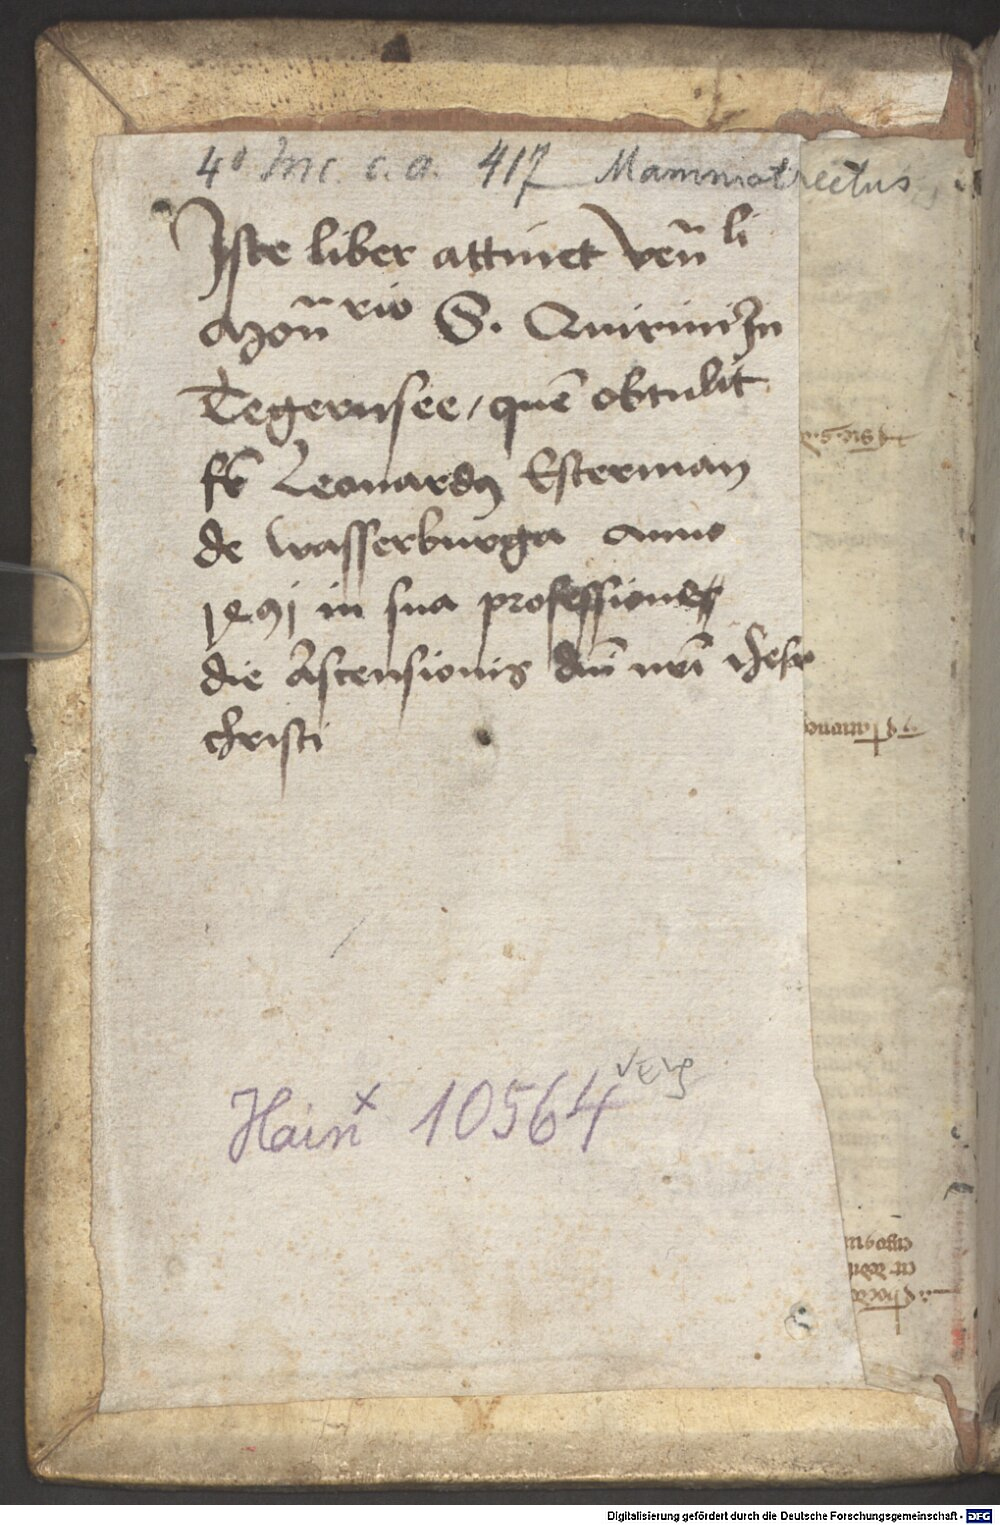 4° Inc. c. a. 417 Mammotrectus
Iste liber attinet Veñ li
Moñ rio S. Quirini In
Tegernsee / quē obtulit
fr̄ Leonardꝰ Esterman
de Wasserburga anno
1491 in sua professione
die Ascensionis dn̄i nr̄i Ihesu
christi
Hain x 10564
Digitalisierung gefördert durch die Deutsche Forschungsgemeinschaft - DFG